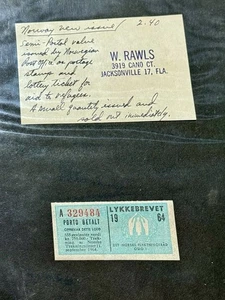 Norway new issue / 2.40
Semi-Postal value
issued by Norwegian
Post Office on postage
stamps and
lottery ticket for
aid to refugees.
A small quantity issued and
sold out immediately.
W. RAWLS
3919 CANO CT.
JACKSONVILLE 17, FLA.
A 329484
PORTO BETALT
LYKKEBREVET
19 64